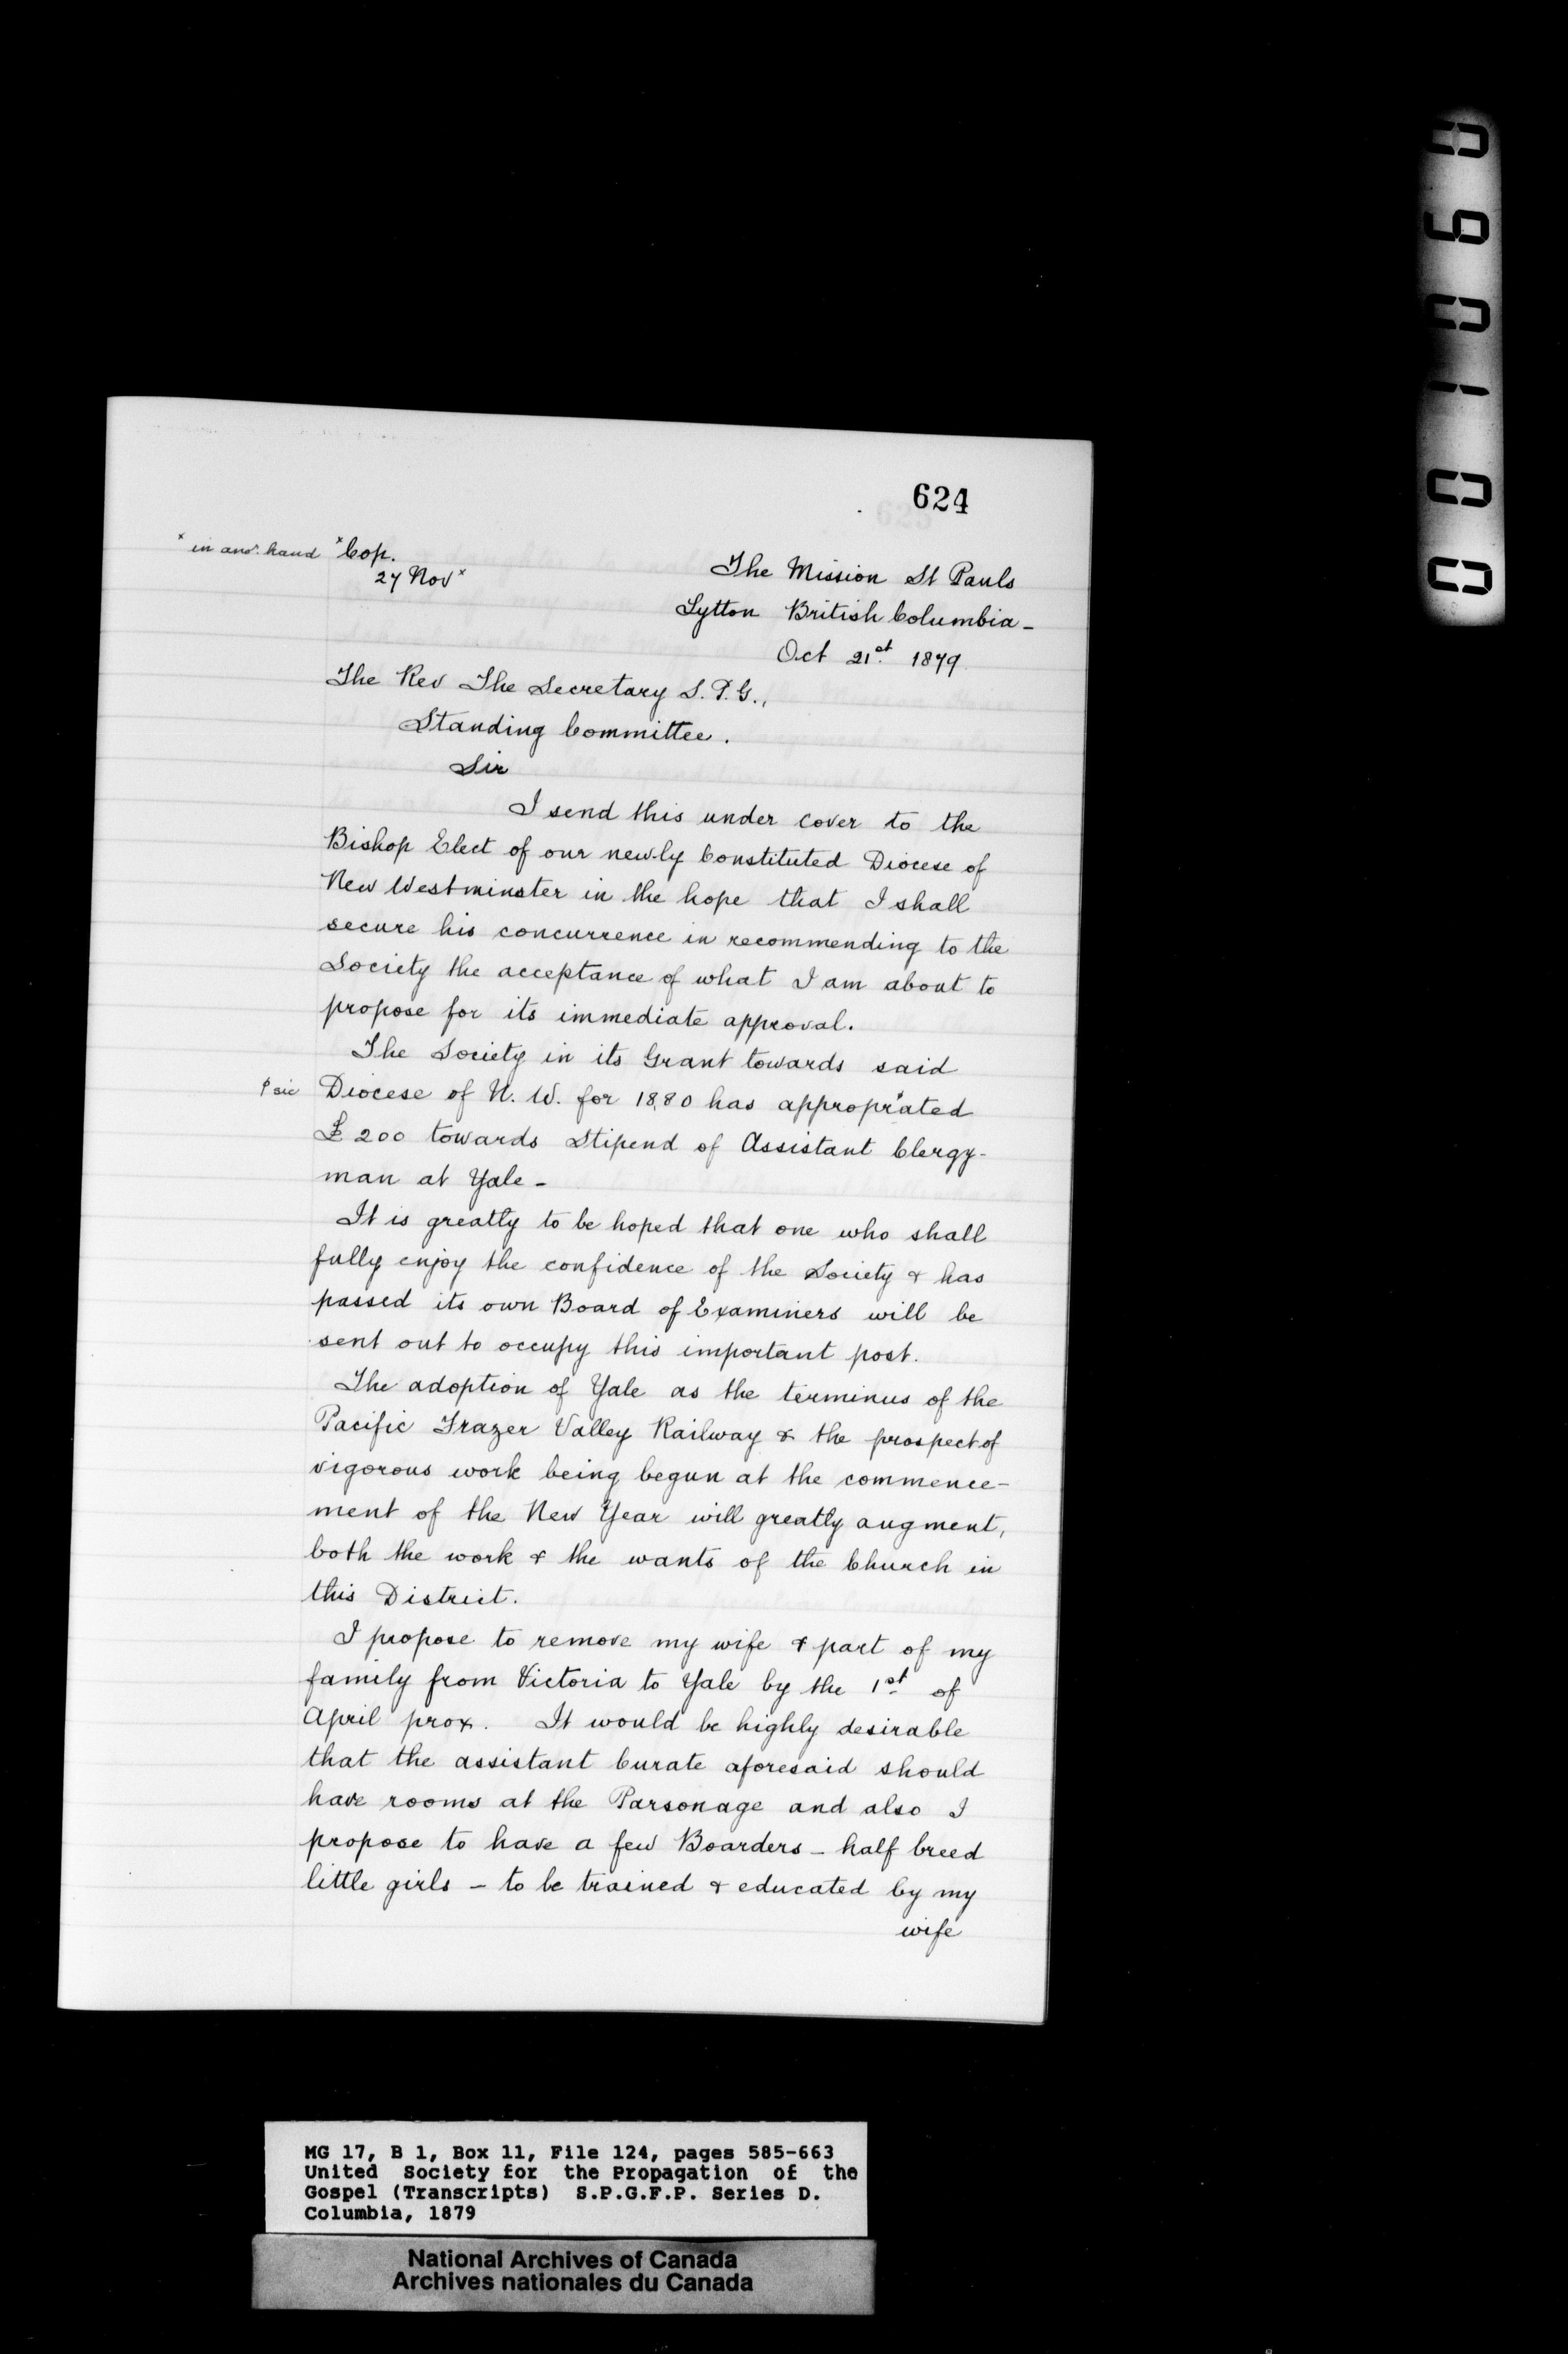 624
x in anor. hand
x Cop.
27 Nov x
The Mission St Pauls
Lytton British Columbia -
Oct 21st. 1879
The Rev The Secretary S. P. G.,
Standing Committee.
Sir
I send this under cover to the
Bishop Elect of our newly Constituted Diocese of
New Westminster in the hope that I shall
secure his concurrence in recommending to the
Society the acceptance of what I am about to
propose for its immediate approval.
The Society in its Grant towards said
sic
Diocese of N. W. for 1880 has appropriated
£200 towards Stipend of Assistant Clergy-
man at Yale -
It is greatly to be hoped that one who shall
fully enjoy the confidence of the Society & has
passed its own Board of Examiners will be
sent out to occupy this important post.
The adoption of Yale as the terminus of the
Pacific Frazer Valley Railway & the prospect of
vigorous work being begun at the commence-
ment of the New Year will greatly augment,
both the work & the wants of the Church in
this District.
I propose to remove my wife & part of my
family from Victoria to Yale by the 1st of
April prox. It would be highly desirable
that the assistant Curate aforesaid should
have rooms at the Parsonage and also I
propose to have a few Boarders - half breed
little girls - to be trained & educated by my
wife
MG 17, B 1, Box 11, File 124, pages 585-663
United Society for the Propagation of the
Gospel (Transcripts) S.P.G.F.P. Series D.
Columbia, 1879
National Archives of Canada
Archives nationales du Canada
0001060